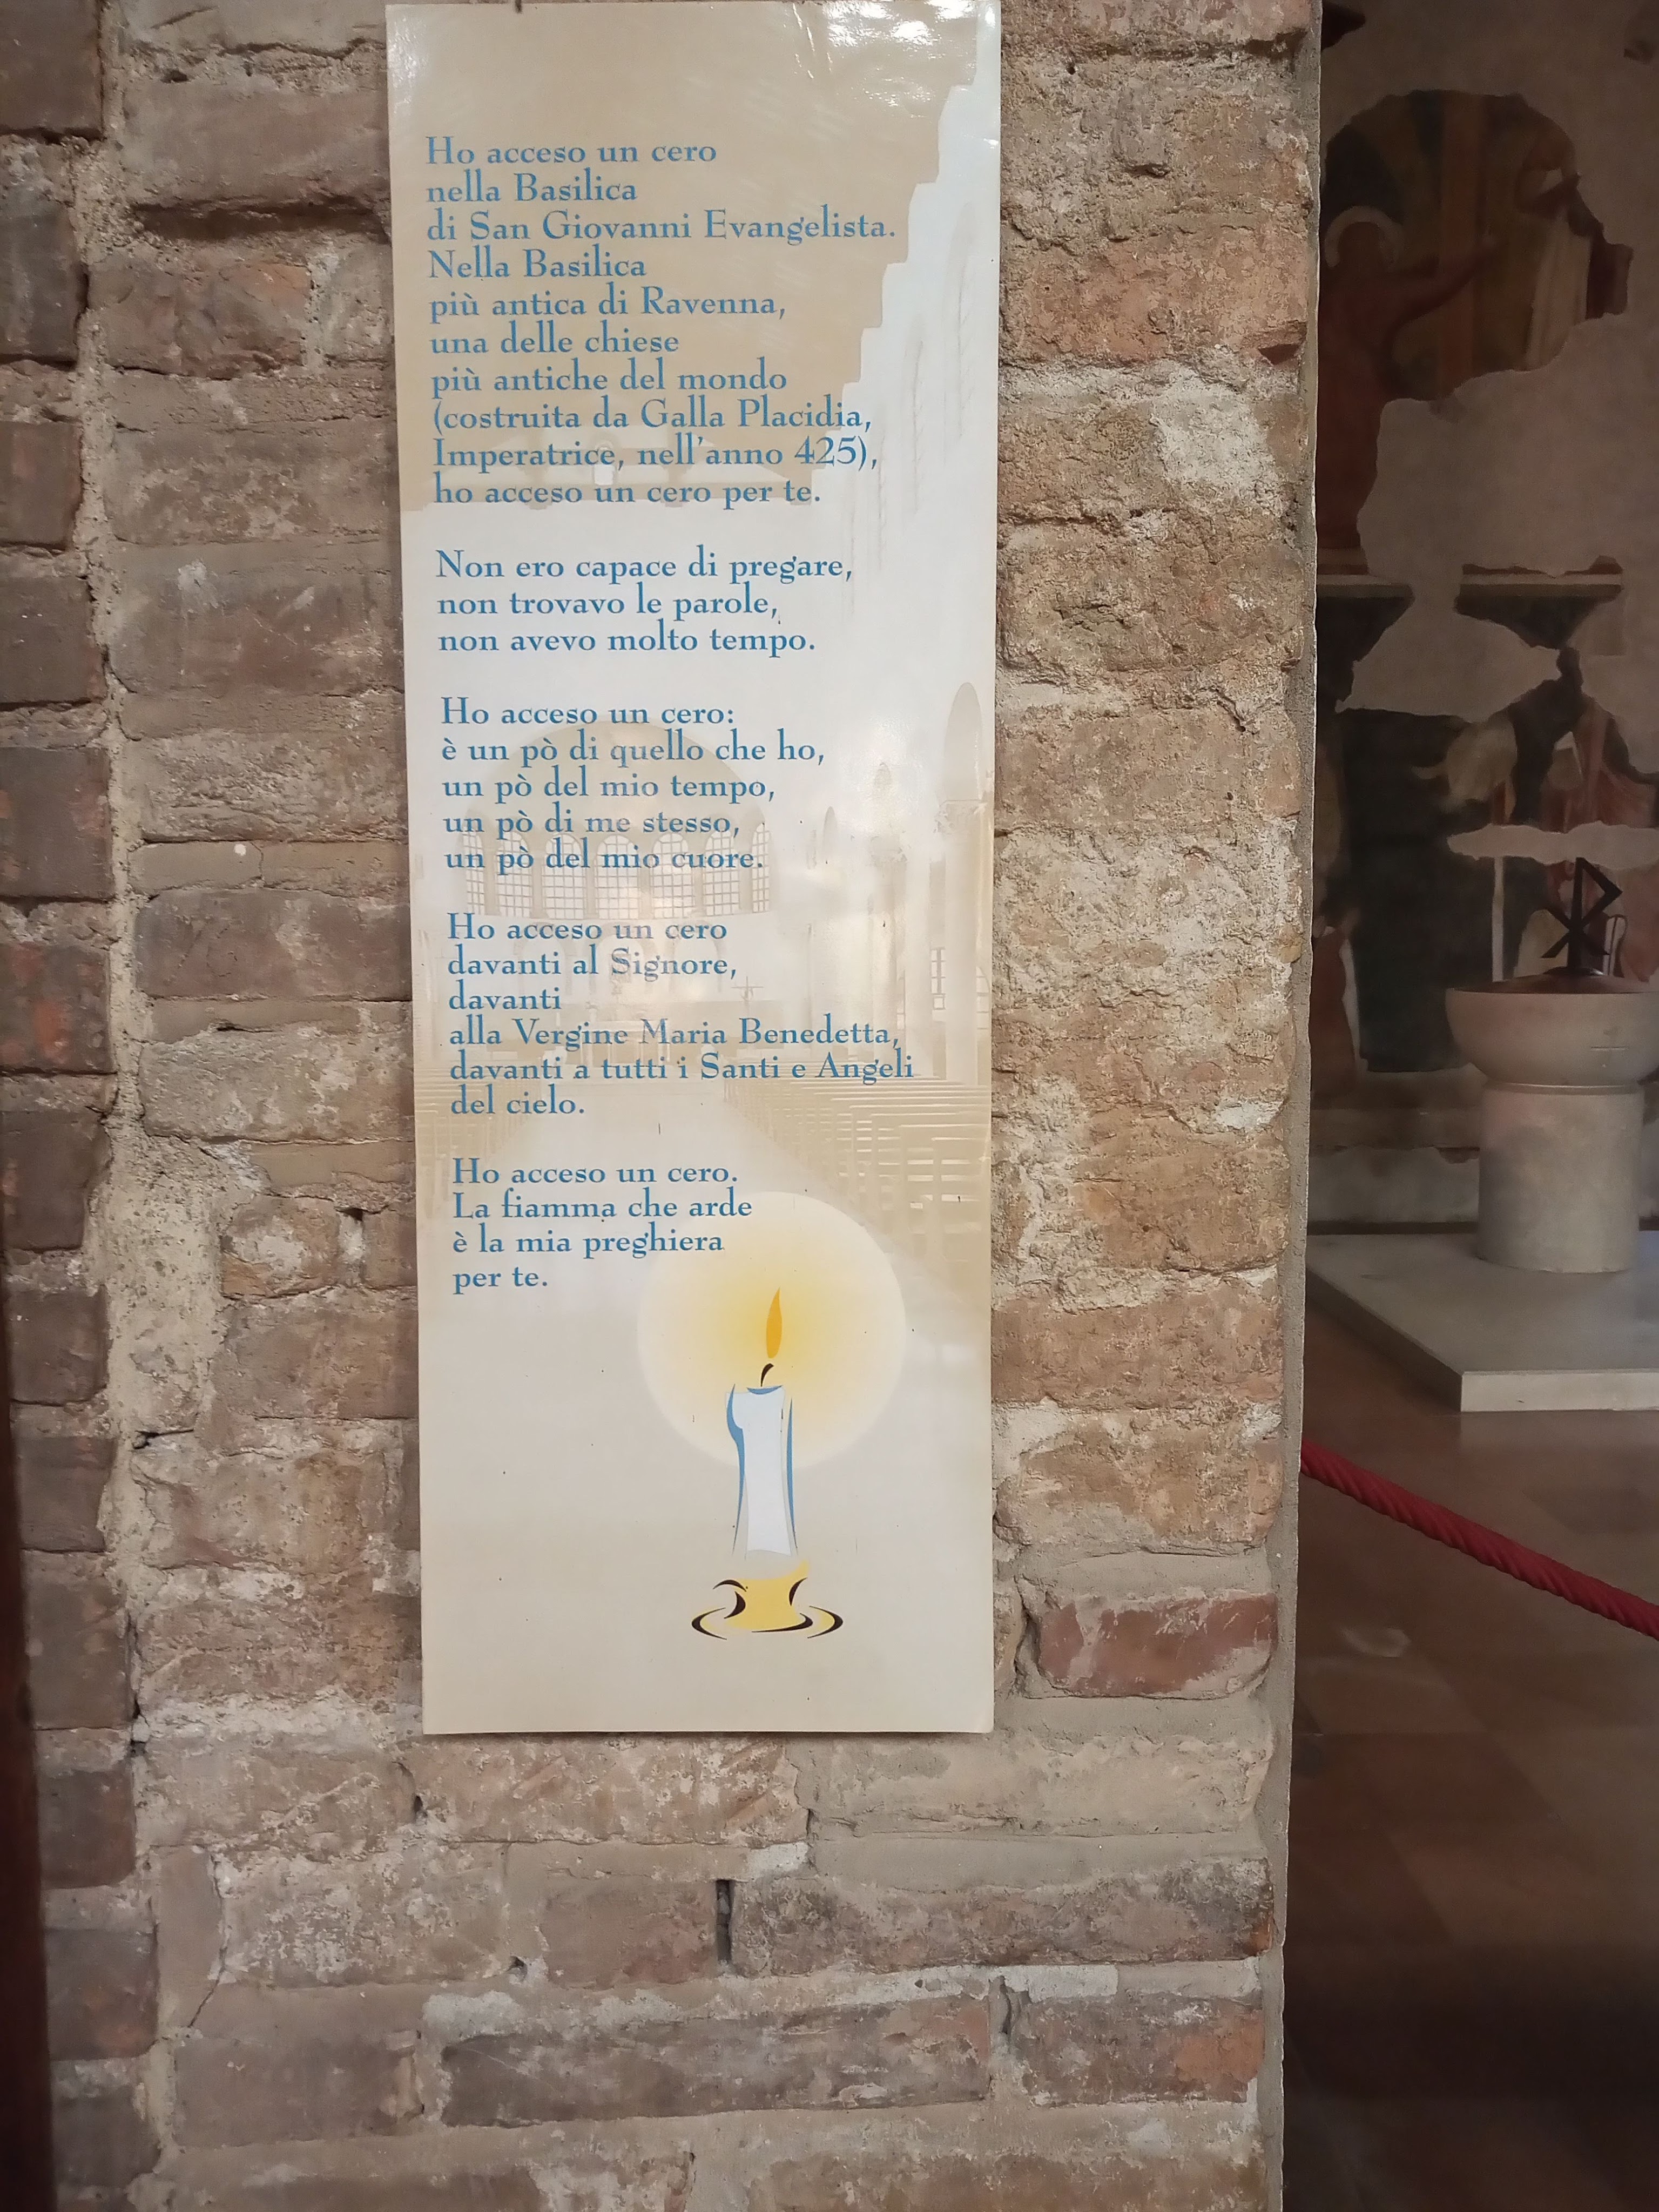 Ho acceso un cero
nella Basilica
di San Giovanni Evangelista.
Nella Basilica
più antica di Ravenna,
una delle chiese
più antiche del mondo
(costruita da Galla Placidia,
Imperatrice, nell'anno 425),
ho acceso un cero per te.
Non ero capace di pregare,
non trovavo le parole,
non avevo molto tempo.
Ho acceso un cero:
è un pò di quello che ho,
un pò del mio tempo,
un pò di me stesso,
un pò del mio cuore.
Ho acceso un cero
davanti al Signore,
davanti
alla Vergine Maria Benedetta,
davanti a tutti i Santi e Angeli
del cielo.
Ho acceso un cero.
La fiamma che arde
è la mia preghiera
per te.